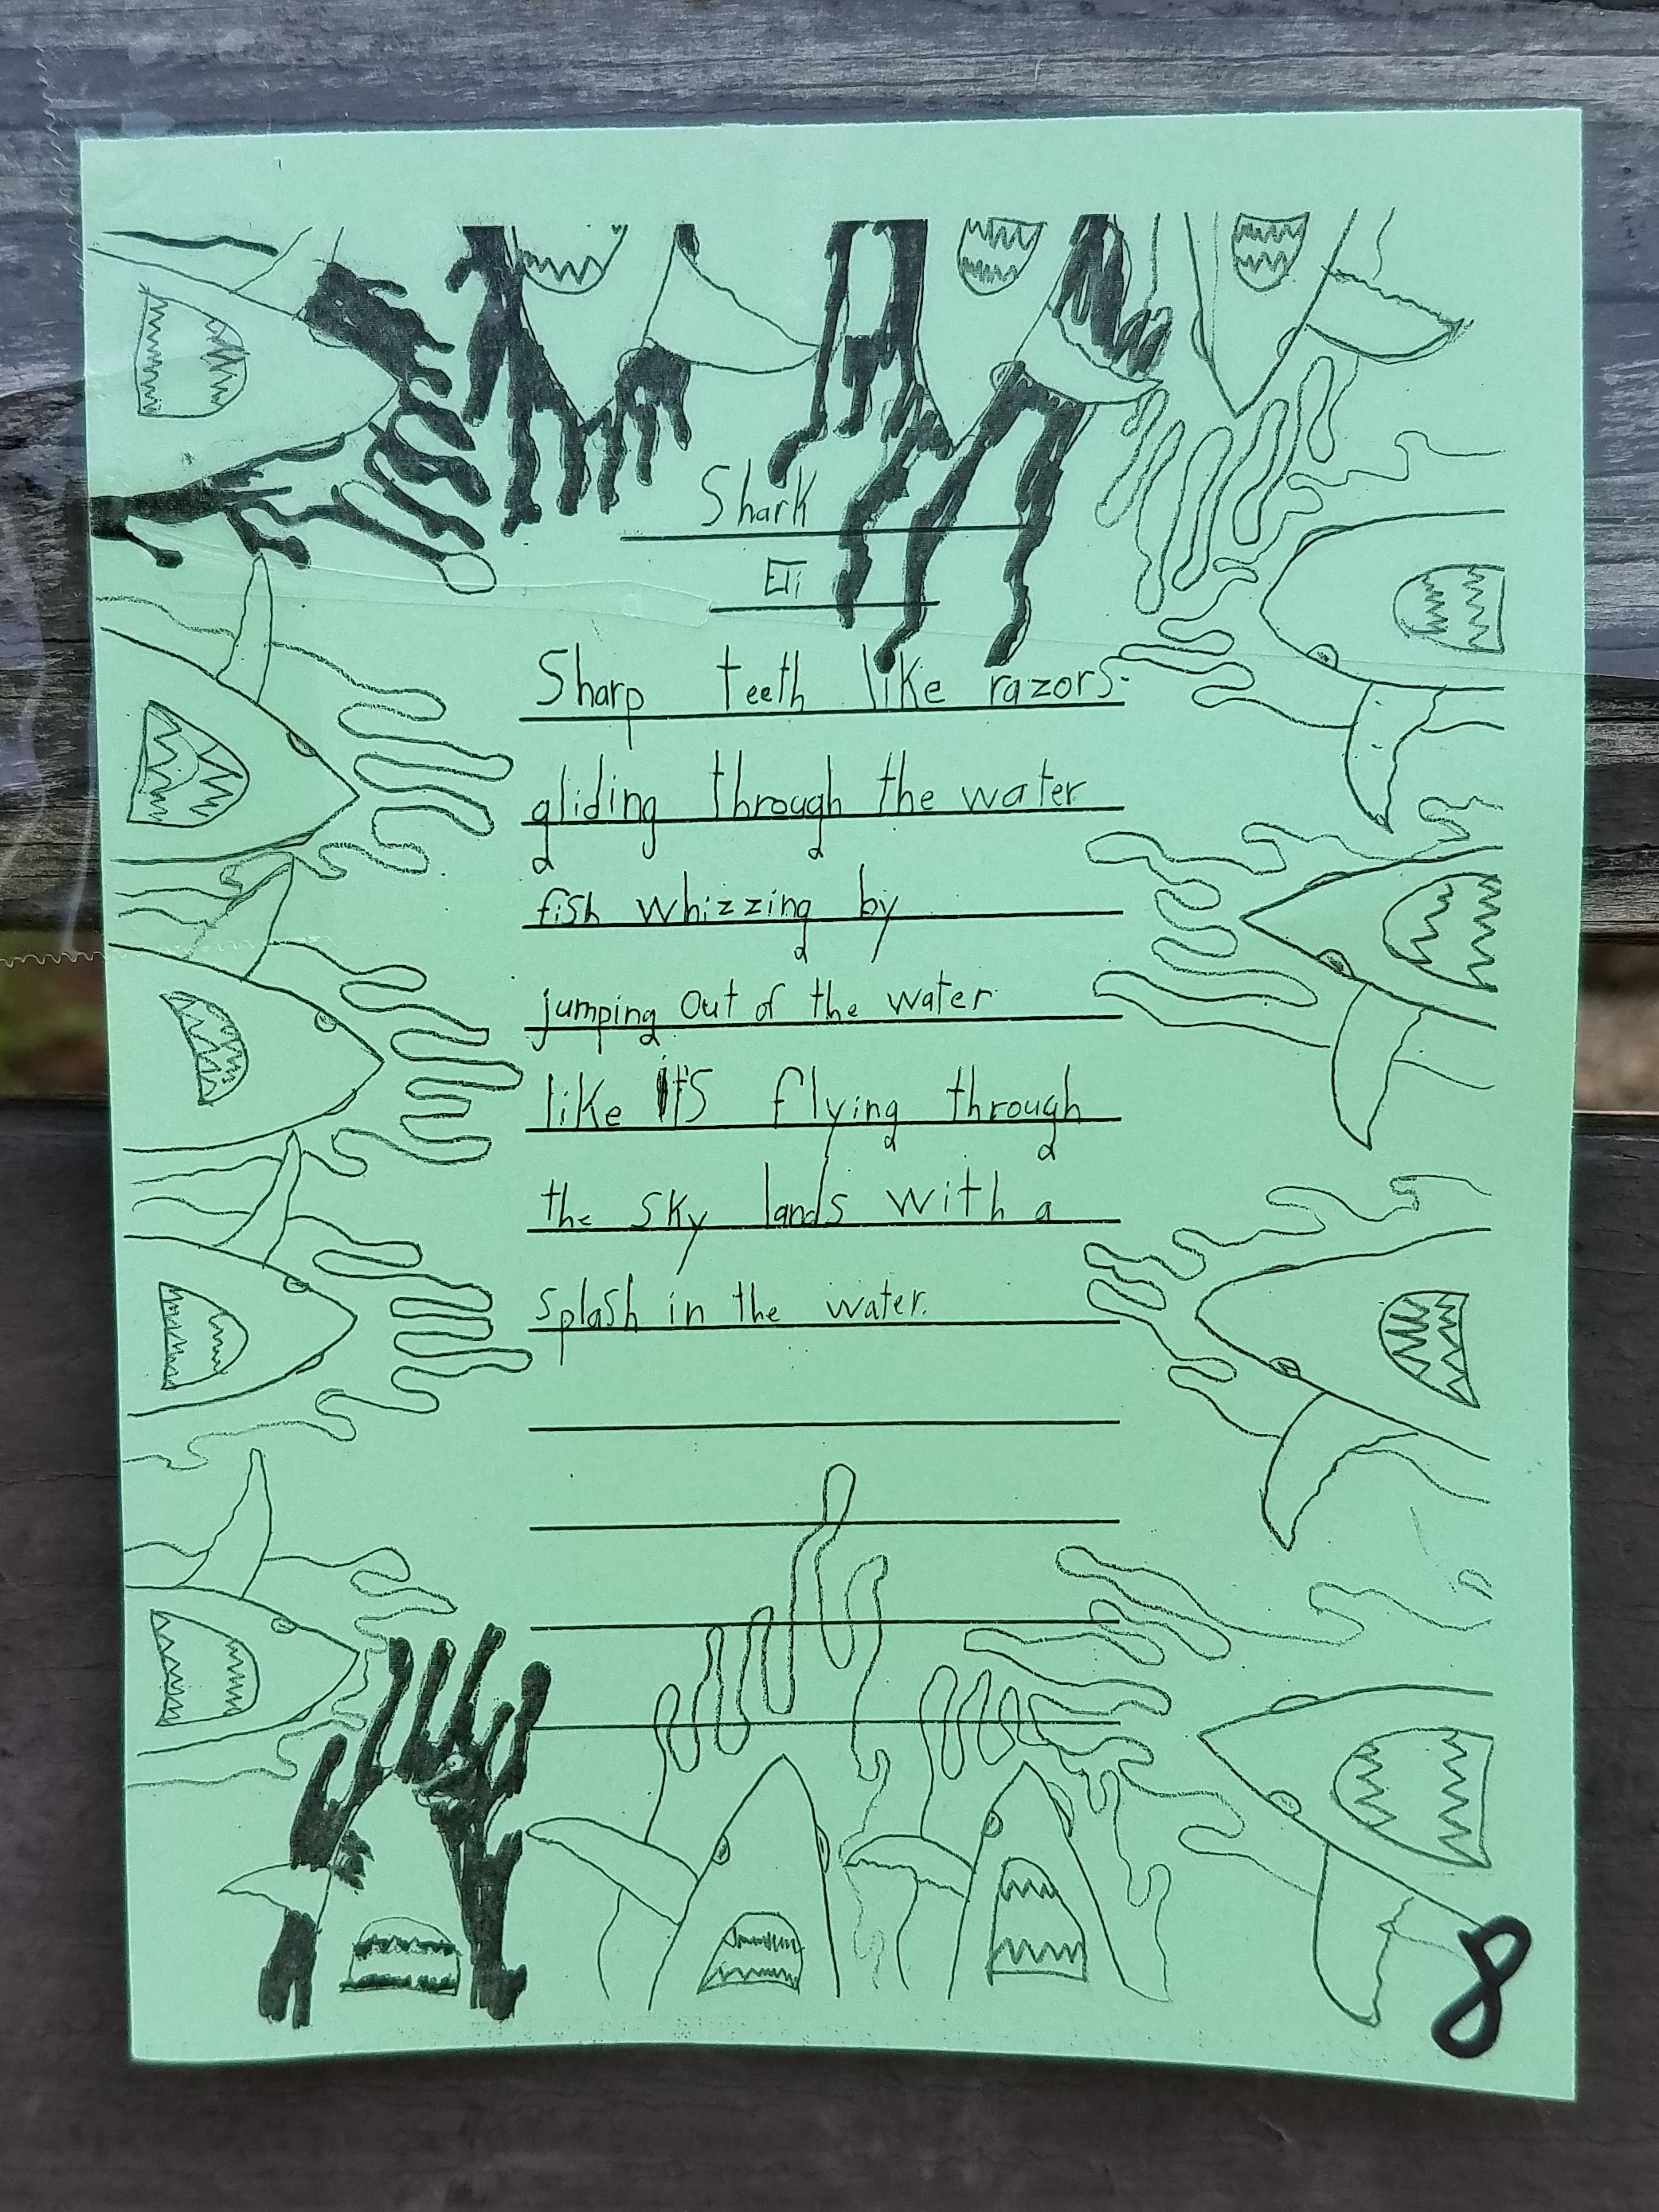 Shark
Eli
Sharp teeth like razors
gliding through the water
fish whizzing by
jumping out of the water
like it's flying through
the sky lands with a
splash in the water.
8